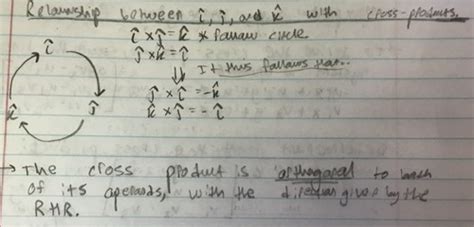 Relationship between î, ĵ, and k̂ with cross-products.
î × ĵ = k̂ * Follow circle
ĵ × k̂ = î
⇓ It thus follows that...
î
k̂ ĵ
ĵ × î = -k̂
k̂ × ĵ = -î
→ The cross product is orthogonal to both
of its operands, with the direction given by the
RHR.